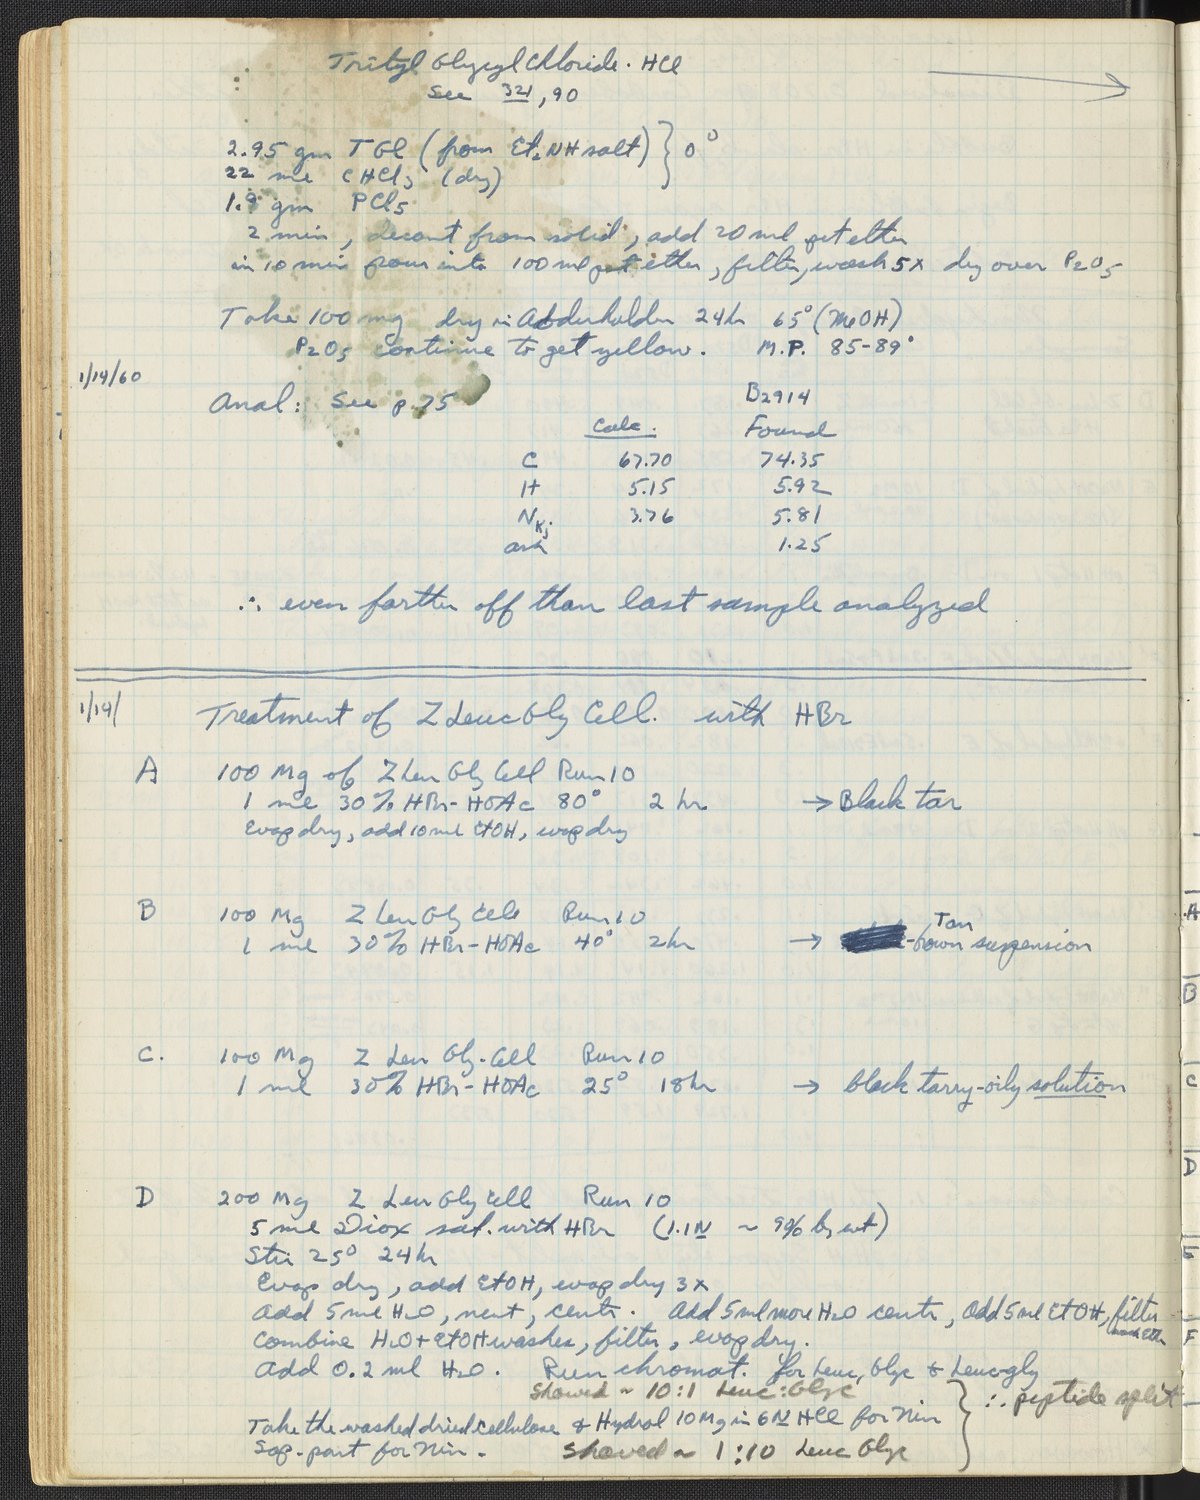 Trityl Glycyl Chloride · HCl
See 321, 90
2.95 gm TGl (from Et₂NH salt) } 0°
22 ml CHCl₃ (dry)
1.9 gm PCl₅
2 min, decant from solid, add 20 ml pet ether
in 10 min pour into 100 ml pet ether, filter, wash 5x dry over P₂O₅
Take 100 mg dry in Abderhalden 24 hr 65° (MeOH)
P₂O₅ continue to get yellow. M.P. 85-89°
1/14/60
Anal: See p. 75
B2914
Calc. Found
C 67.70 74.35
H 5.15 5.92
N Kj 3.76 5.81
ash 1.25
∴ even farther off than last sample analyzed
1/14/ Treatment of Z Leuc Gly Cell. with HBr
A 100 Mg of Z Leu Gly Cell Run 10
1 ml 30% HBr-HOAc 80° 2 hr → Black tar
Evap dry, add 10 ml EtOH, evap dry
B 100 Mg Z Leu Gly Cell Run 10
1 ml 30% HBr-HOAc 40° 2 hr → Tan-brown suspension
C. 100 Mg Z Leu Gly-Cell Run 10
1 ml 30% HBr-HOAc 25° 18 hr → black tarry-oily solution
D 200 Mg Z Leu Gly Cell Run 10
5 ml Diox sat. with HBr (1.1N ~ 9% by wt)
Stir 25° 24 hr
Evap dry, add EtOH, evap dry 3x
Add 5 ml H₂O, neut, centr. Add 5 ml more H₂O centr, Add 5 ml EtOH, filter
Combine H₂O + EtOH washes, filter, evap dry.
Add 0.2 ml H₂O. Run chromat. for Leuc, Glyc & Leuc-gly
Showed ~ 10:1 Leuc:Glyc
} ∴ peptide split
Take the washed dried cellulose & Hydrol 10 Mg in 6N HCl for Nin
Sap. part for Nin. Showed ~ 1:10 Leuc Glyc
A
B
C
D
E
F